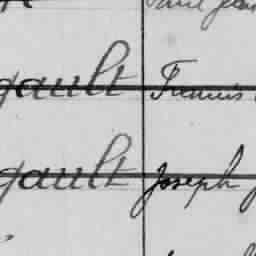 gault Francis
gault Joseph